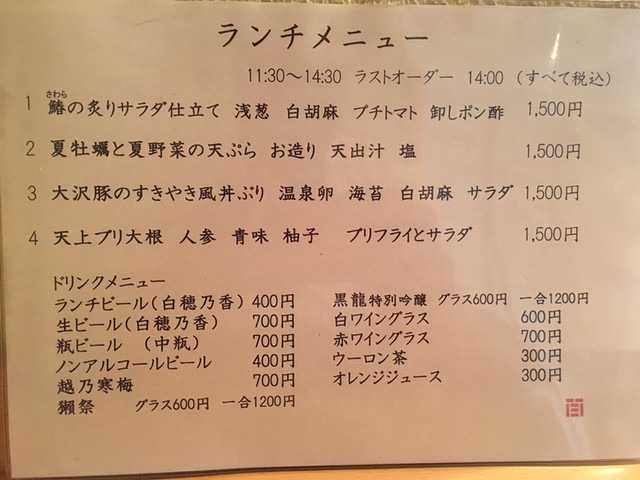 ランチメニュー
11:30～14:30 ラストオーダー 14:00 (すべて税込)
さわら
1 鰆の炙りサラダ仕立て 浅葱 白胡麻 プチトマト 卸しポン酢 1,500円
2 夏牡蠣と夏野菜の天ぷら お造り 天出汁 塩 1,500円
3 大沢豚のすきやき風丼ぶり 温泉卵 海苔 白胡麻 サラダ 1,500円
4 天上ブリ大根 人参 青味 柚子 ブリフライとサラダ 1,500円
ドリンクメニュー
ランチビール(白穂乃香) 400円
生ビール(白穂乃香) 700円
瓶ビール (中瓶) 700円
ノンアルコールビール 400円
越乃寒梅 700円
獺祭 グラス600円 一合1200円
黒龍特別吟醸 グラス600円 一合1200円
白ワイングラス 600円
赤ワイングラス 700円
ウーロン茶 300円
オレンジジュース 300円